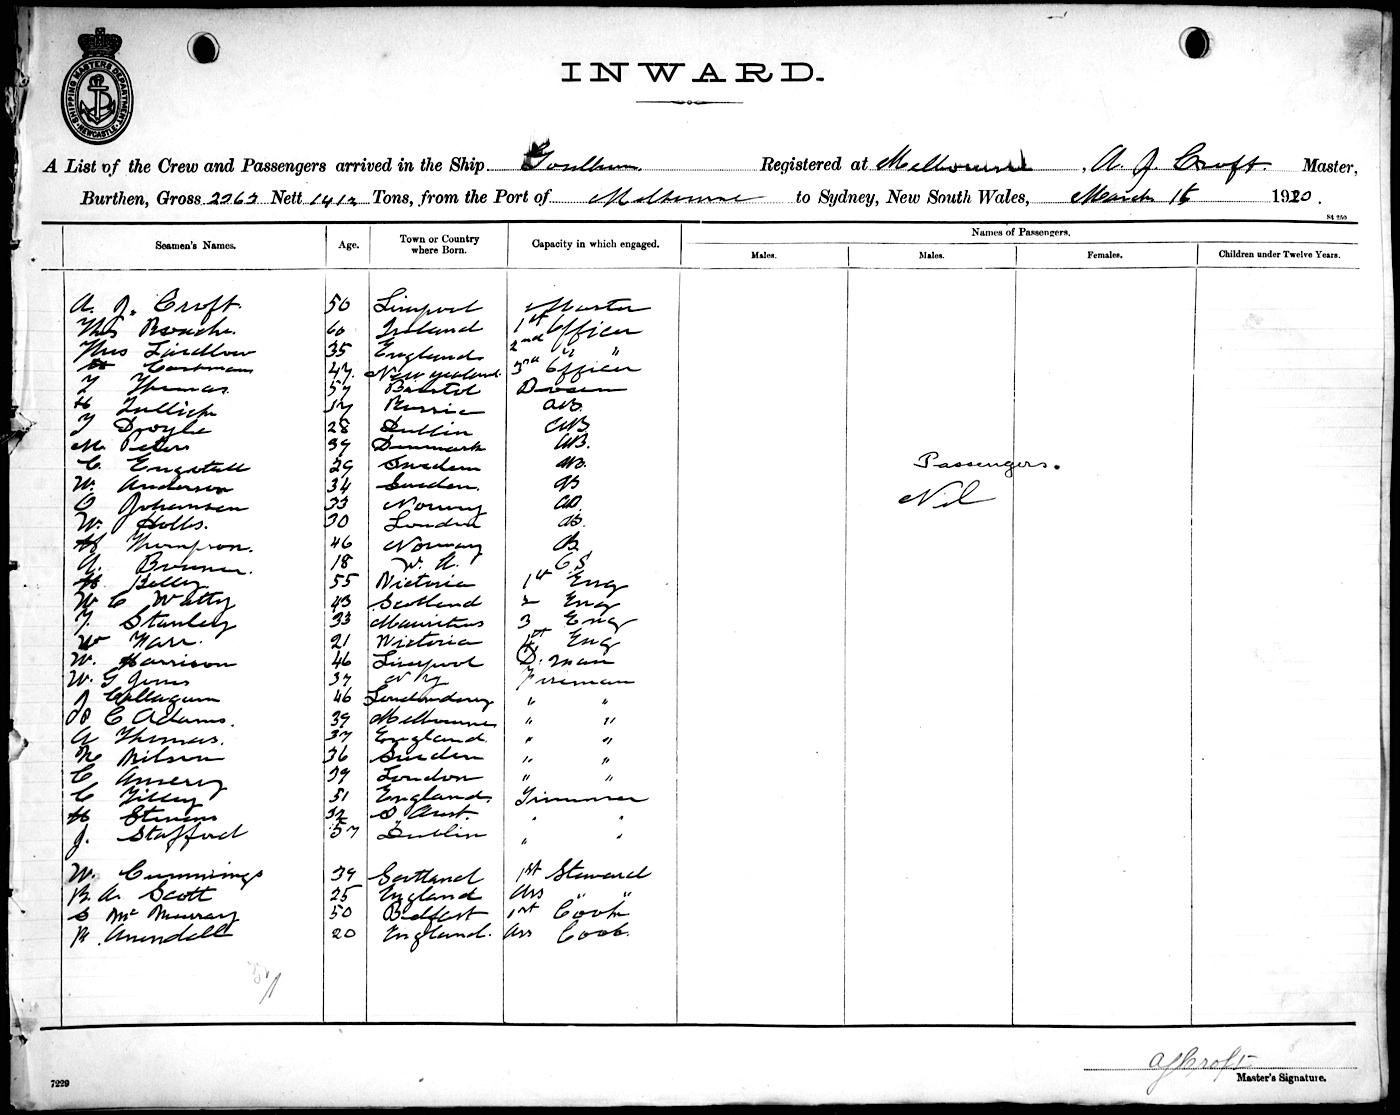 SHIPPING MASTERS DEPARTMENT
NEWCASTLE
INWARD.
A List of the Crew and Passengers arrived in the Ship Goulburn Registered at Melbourne, A. J. Croft Master,
Burthen, Gross Nett Tons, from the Port of Melbourne to Sydney, New South Wales, March 16 1920.
S4 250
Seamen's Names. Age. Town or Country where Born. Capacity in which engaged. Names of Passengers.
Males. Males. Females. Children under Twelve Years.
A. J. Croft. 50 Liverpool Master
Thos Roache. 60 Ireland 1st Officer
Thos 35 England 2nd " "
47. New Zealand 3rd Officer
Thomas 57 Bristol
H 37 Russia AB.
28 Dublin AB
M. Peters 39 Denmark AB.
C. 29 Sweden AB.
W. Anderson 34 Sweden. AB
O Johansen 33 Norway AB.
W. Hills. 30 London AB.
H Thompson. 46 Norway AB
A. 18 W. A. O.S.
H. 55 Victoria 1st Eng
W C Watty 43 Scotland 2 Eng
F. Stanley 33 Mauritius 3 Eng
W Farr. 21 Victoria 4th Eng
W. Harrison 46 Liverpool D. man
W. G Jones 37 N Z Fireman
J 46 Londonderry " "
C Adams. 39 Melbourne " "
A Thomas. 37 England. " "
N Nilson 36 Sweden " "
C 39 London " "
C Tilley 51 England. Trimmer
H Stevens 32 S Aust. " "
J. Stafford 57 Dublin " "
W. Cummings 39 Scotland 1st Steward
R. A. Scott 25 England Ass " "
S McMurray 50 Belfast 1st Cook
R. Arundell 20 England. Ass Cook.
Passengers.
Nil
A J Croft
7229
Master's Signature.